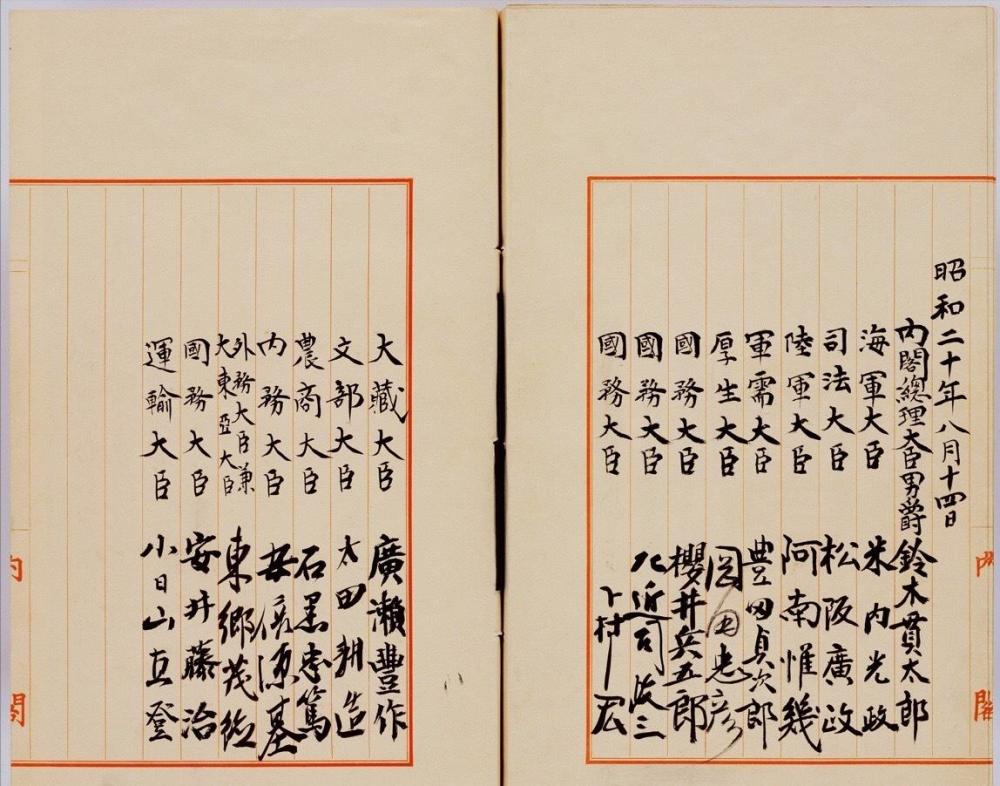 内閣
昭和二十年八月十四日
内閣總理大臣男爵 鈴木貫太郎
海軍大臣 米内光政
司法大臣 松阪廣政
陸軍大臣 阿南惟幾
軍需大臣 豊田貞次郎
厚生大臣 岡田忠彦
國務大臣 櫻井兵五郎
國務大臣 左近司政三
國務大臣 下村宏
大藏大臣 廣瀨豐作
文部大臣 太田耕造
農商大臣 石黒忠篤
内務大臣 安倍源基
外務大臣兼
大東亞大臣 東郷茂徳
國務大臣 安井藤治
運輸大臣 小日山直登
内閣